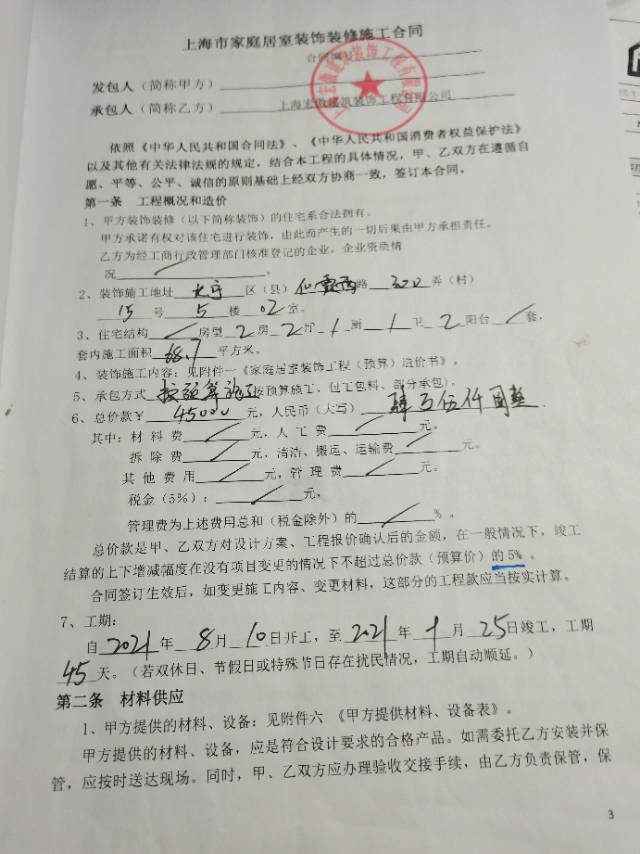 上海市家庭居室装饰装修施工合同
发包人（简称甲方）
承包人（简称乙方）
依照《中华人民共和国合同法》、《中华人民共和国消费者权益保护法》
以及其他有关法律法规的规定，结合本工程的具体情况，甲、乙双方在遵循自
愿、平等、公平、诚信的原则基础上经双方协商一致，签订本合同。
第一条 工程概况和造价
1、甲方装饰装修（以下简称装饰）的住宅系合法拥有。
甲方承诺有权对该住宅进行装饰，由此而产生的一切后果由甲方承担责任。
乙方为经工商行政管理部门核准登记的企业，企业资质情
况 。
2、装饰施工地址 区（县） 仙霞西 路 322 弄（村）
15 号 5 楼 02 室。
3、住宅结构 房型 2 房 2 厅 1 厕 1 卫 2 阳台 套，
套内施工面积 68.7 平方米。
4、装饰施工内容：见附件一《家庭居室装饰工程（预算）造价书》。
5、承包方式 按预算施工（按预算施工、包工包料、部分承包）。
6、总价款￥ 45000 元，人民币（大写） 肆万伍仟圆整
其中：材料费 元，人工费 元。
拆除费 元，清洁、搬运、运输费 元。
其他费用 元，管理费 元。
税金（5%）： 元，
管理费为上述费用总和（税金除外）的 %。
总价款是甲、乙双方对设计方案、工程报价确认后的金额，在一般情况下，竣工
结算的上下增减幅度在没有项目变更的情况下不超过总价款（预算价）的5%。
合同签订生效后，如变更施工内容、变更材料，这部分的工程款应当按实计算。
7、工期：
自 2021 年 8 月 10 日开工，至 2021 年 9 月 25 日竣工，工期
45 天。（若双休日、节假日或特殊节日存在扰民情况，工期自动顺延。）
第二条 材料供应
1、甲方提供的材料、设备：见附件六 《甲方提供材料、设备表》。
甲方提供的材料、设备，应是符合设计要求的合格产品。如需委托乙方安装并保
管，应按时送达现场。同时，甲、乙双方应办理验收交接手续，由乙方负责保管，保
3